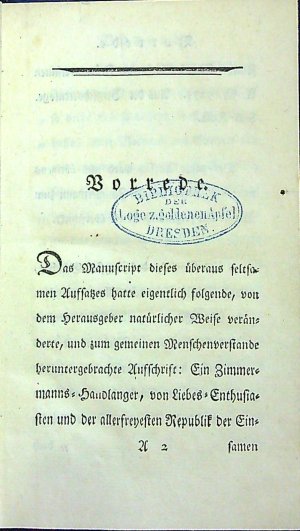 Vorrede.
BIBLIOTHEK
DER
Loge z. goldenen Apfel
DRESDEN.
Das Manuscript dieses überaus seltsa-
men Aufsatzes hatte eigentlich folgende, von
dem Herausgeber natürlicher Weise verän-
derte, und zum gemeinen Menschenverstande
heruntergebrachte Aufschrift: Ein Zimmer-
manns-Handlanger, von Liebes-Enthusia-
sten und der allerfreyesten Republik der Ein-
A 2 samen